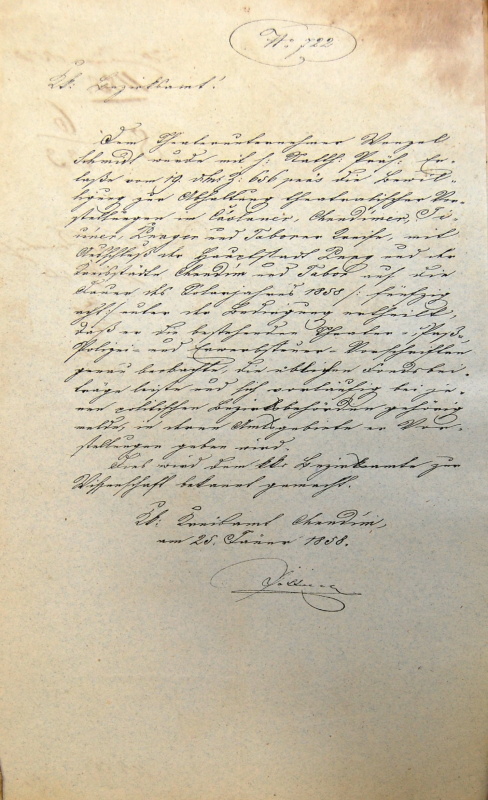 No 722
KK: Bezirksamt!
Dem Theaterunternehmer Wenzel
Schmidt wurde mit h: Statth: Präs: Er-
laße vom 19. d. Mts Z: 656 präs die Bewil-
ligung zur Abhaltung theatralischer Vor-
stellungen im Časlauer, Chrudimer, Ji-
činer, Prager und Taborer Kreise, mit
Ausschluß der Hauptstadt Prag und der
Kreisstädte Chrudim und Tabor auf die
Dauer des Solarjahres 1858 /: fünfzig
acht :/ unter der Bedingung ertheilt,
daß er die bestehenden Theater-, Paß-,
Polizei- und Erwerbsteuer-Vorschriften
genau beobachte, die üblichen Fondsbei-
träge leiste und sich vorläufig bei je-
nen politischen Bezirksbehörden gehörig
melde, in deren Amtsgebiete er Vor-
stellungen geben wird.
Dies wird dem kk: Bezirksamte zur
Wissenschaft bekannt gemacht.
KK: Kreisamt Chrudim,
am 25. Jäner 1858.